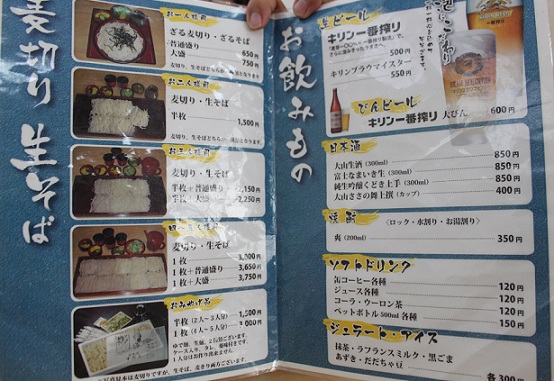 麦切り 生そば
お一人様前
ざる麦切り・ざるそば
普通盛り 650円
大盛 750円
お二人様前
麦切り・生そば
半枚 1,500円
お三人様前
麦切り・生そば
半枚+普通盛り 2,150円
半枚+大盛 2,250円
麦切り・生そば
1枚 3,000円
1枚+普通盛り 3,650円
1枚+大盛 3,750円
おみやげ品
半枚(2人~3人分) 1,500円
1枚(4人~5人分) 3,000円
お飲みもの
生ビール
キリン一番搾り
500円
キリンブラウマイスター
550円
びんビール
キリン一番搾り 大びん 600円
日本酒
大山生酒(300ml) 850円
富士なまいき生(300ml) 850円
純生吟醸くどき上手(300ml) 850円
大山ささの舞上撰(カップ) 400円
焼酎 <ロック・水割り・お湯割り>
爽(200ml) 350円
ソフトドリンク
缶コーヒー各種 120円
ジュース各種 120円
コーラ・ウーロン茶 120円
ペットボトル500ml各種 150円
ジェラート・アイス
抹茶・ラフランスミルク・黒ごま
あずき・だだちゃ豆
各300円